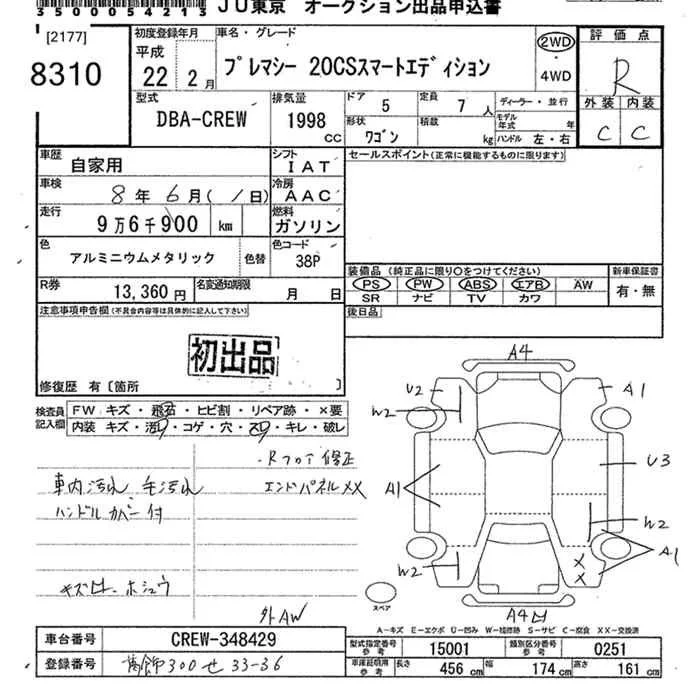 350005421​3
JU東京 オークション出品申込書
[2177]
8310
初度登録年月
平成
22年 2月
車名・グレード
プレマシー 20CSスマートエディション
2WD
・
4WD
評価点
R
外装 内装
C C
型式
DBA-CREW
排気量
1998 cc
ドア 5
定員 7 人
形状 ワゴン
積載 kg
ディーラー・並行
モデル年式 年
ハンドル 左・右
車歴 自家用
シフト IAT
セールスポイント(正常に機能するものに限ります)
車検 8年 6月( / 日)
冷房 AAC
走行 9万6千900 km
燃料 ガソリン
色 アルミニウムメタリック 色替
色コード 38P
R券 13,360円
名変通知期限 月 日
装備品 (純正品に限り○をつけてください)
PS PW ABS エアB AW
SR ナビ TV カワ
新車保証書
有・無
後日品
注意事項申告欄(不具合内容等は具体的に記入して下さい)
初出品
修復歴 有〔箇所 〕
検査員記入欄
FW キズ・飛石・ヒビ割・リペア跡・×要
内装 キズ・汚れ・コゲ・穴・スレ・キレ・破レ
エンドパネルXX
車内汚れ 毛汚れ
ハンドルカバー付
外AW
A4
U2
W2
A1
A1
U3
W2
A1
W2
X
X
A4
スペア
A-キズ E-エクボ U-凹み W-補修跡 S-サビ C-腐食 XX-交換済
車台番号 CREW-348429
型式指定番号 参考 15001
類別区分番号 参考 0251
登録番号 葛飾300せ33-36
車庫証明用 参考
長さ 456 cm 幅 174 cm 高さ 161 cm